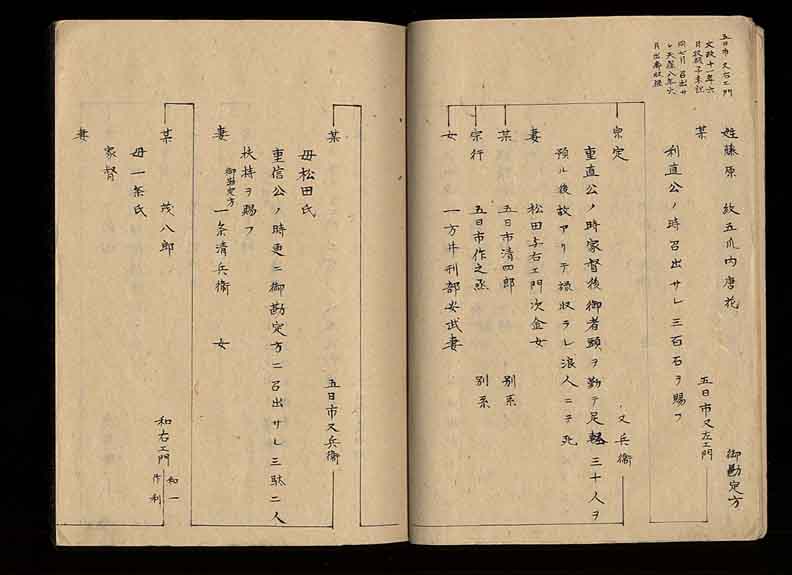 五日市又右エ門
文政十一年六
月
同七月召出サ
レ天保八年六
月出奔
姓藤原 紋五爪内唐花 御勘定方
某 五日市又左エ門
利直公ノ時召出サレ三百石ヲ賜フ
宗定 又兵衛
重直公ノ時家督後御者頭ヲ勤テ足軽三十人ヲ
預ル後故アリテ禄収ラレ浪人ニテ死
妻 松田与右エ門次金女
某 五日市清四郎 別系
宗行 五日市作之丞 別系
女 一方井刑部安武妻
某 五日市又兵衛
母松田氏
重信公ノ時更ニ御勘定方ニ召出サレ三駄二人
扶持ヲ賜フ
妻 御勘定方 一条清兵衛 女
某 茂八郎 和右エ門 和一 作利
母一条氏
家督
妻